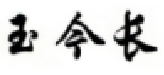 玉今长